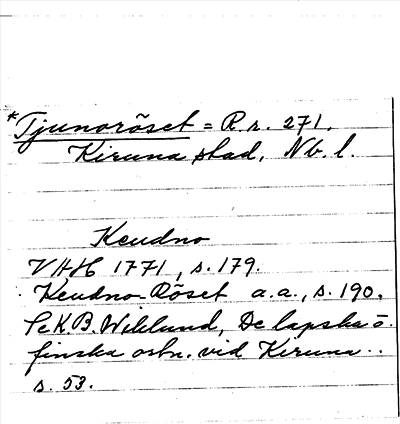 *Tjunoröset = R.r. 271.
Kiruna stad, Nb. l.
Keudno
VHH 1771, s. 179.
Keudno-Röset a.a., s. 190.
Se K.B. Wiklund, De lapska o.
finska ortn. vid Kiruna..
s. 53.